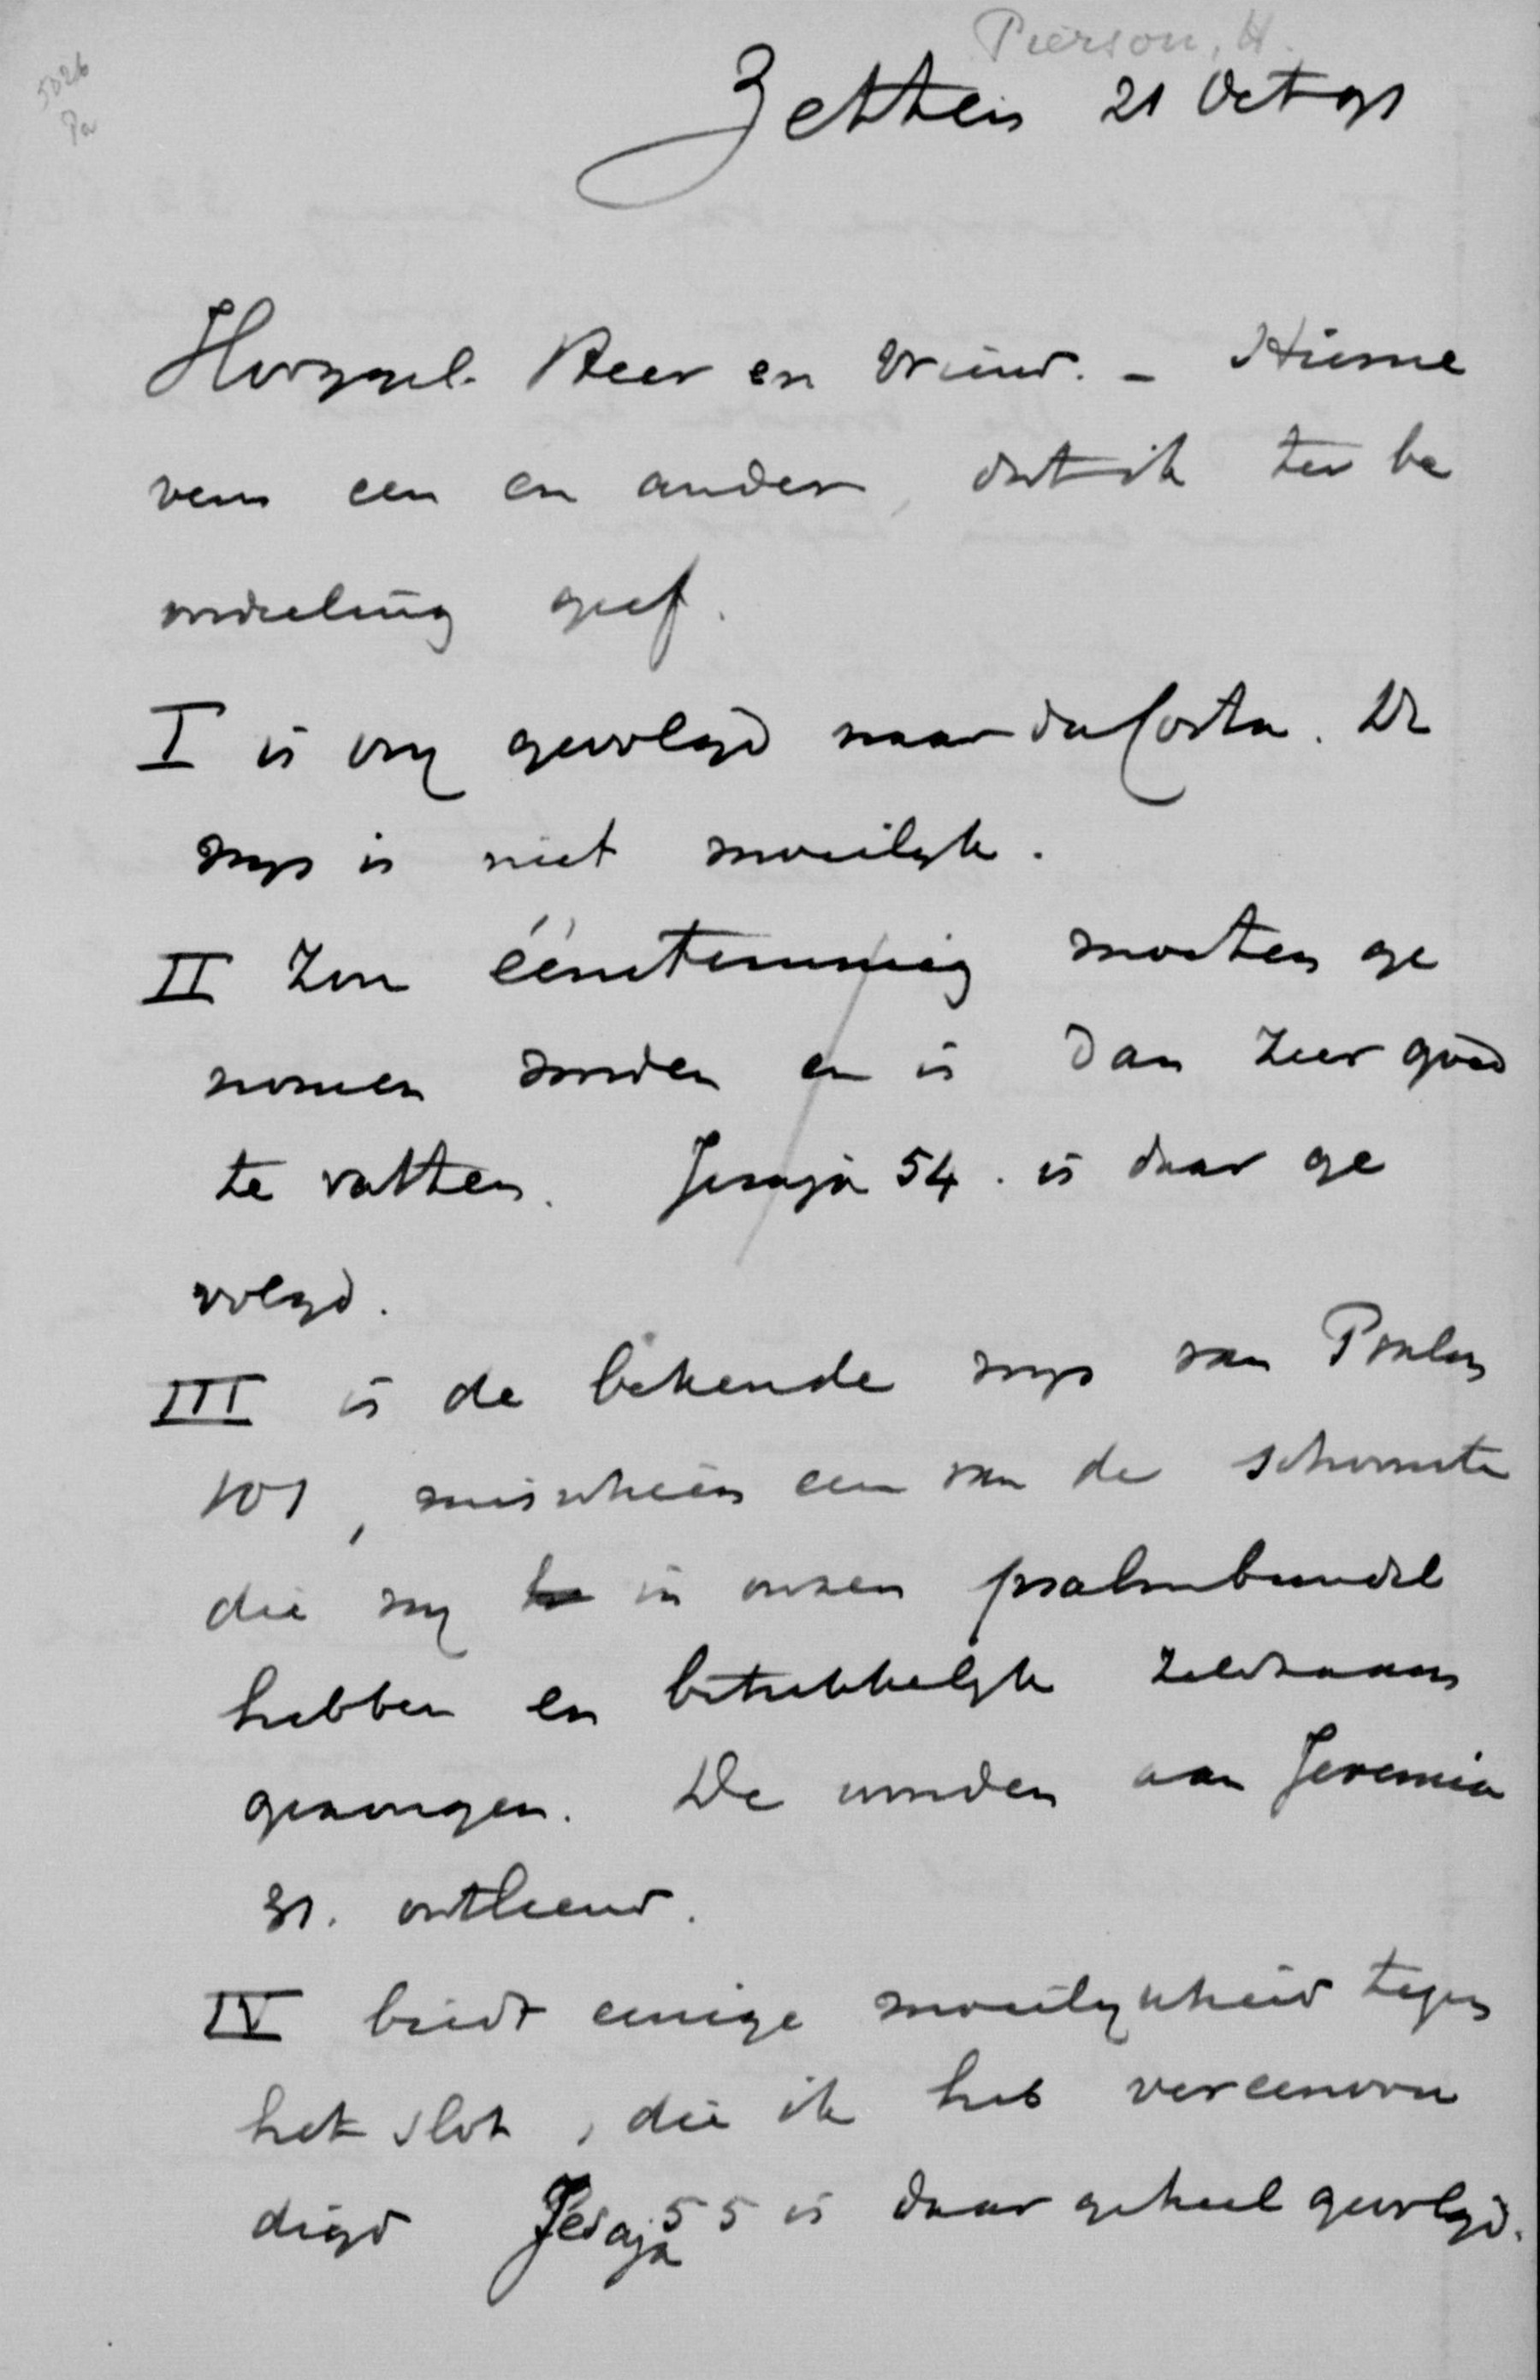 Pierson, H.
5026
Pa
Zetten 21 Oct 91
Hooggel. Heer en Vriend. - Hierne
vens een en ander, dat ik ter be
oordeeling geef.
I is vry gevolgd naar da Costa. De
wys is niet moeilyk.
II Zou éénstemmig moeten ge
nomen worden en is dan zeer goed
te vatten. Jesaja 54. is daar ge
volgd.
III is de bekende wys van Psalm
101, misschien een van de schoonste
die wy in onzen psalmbundel
hebben en betrekkelyk zeldzaam
gezongen. De woorden aan Jeremia
31. ontleend.
IV biedt eenige moeilykheid tegen
het slot, die ik heb vereenvou
digd Jesaja 55 is daar geheel gevolgd.